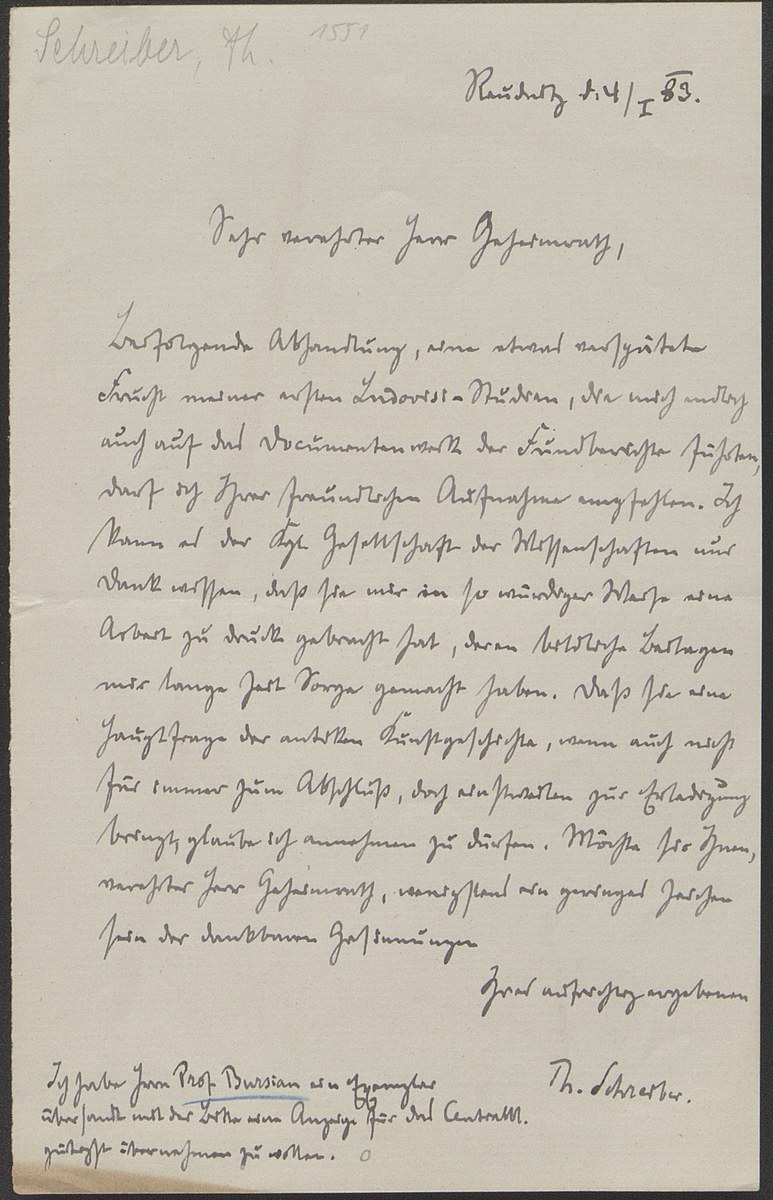 Schreiber, Th. 1551
Raudnitz d. 4/I 83.
Sehr verehrter Herr Geheimrath,
Beifolgende Abhandlung, eine etwas verspätete
Frucht meiner ersten Ludovisi-Studien, die mich endlich
auch auf das Documentenwerk der Fundberichte führten,
darf ich Ihrer freundlichen Aufnahme empfehlen. Ich
kann es der Kgl. Gesellschaft der Wissenschaften nur
Dank wissen, daß sie mir in so würdiger Weise eine
Arbeit zu Druck gebracht hat, deren bildliche Beilagen
mir lange Zeit Sorge gemacht haben. Daß sie eine
Hauptfrage der antiken Kunstgeschichte, wenn auch nicht
für immer zum Abschluß, doch einstweilen zur Erledigung
bringt, glaube ich annehmen zu dürfen. Möchte sie Ihnen,
verehrter Herr Geheimrath, wenigstens ein geringes Zeichen
sein der dankbaren Gesinnungen
Ihres aufrichtig ergebenen
Th. Schreiber.
Ich habe Herrn Prof. Bursian ein Exemplar
übersandt mit der Bitte eine Anzeige für das Centralbl.
gütigst übernehmen zu wollen.